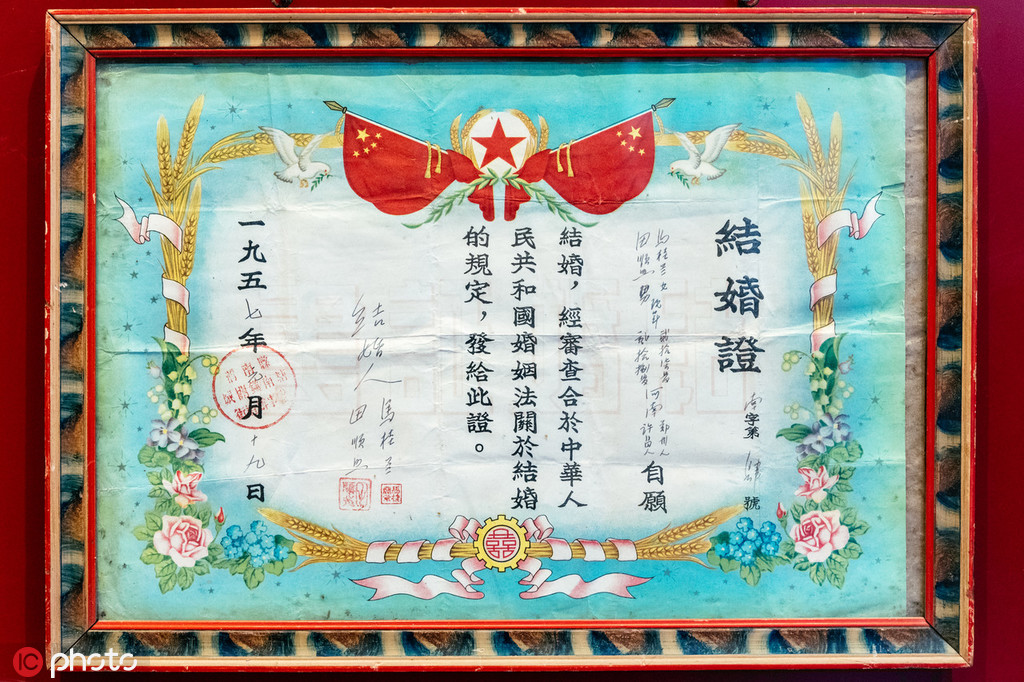 結婚證
字第 號
馬桂
田順 男
河南
許昌人
自願
結婚，經審查合於中華人
民共和國婚姻法關於結婚
的規定，發給此證。
結婚人 馬桂
田順
一九五七年元月十九日
IC photo